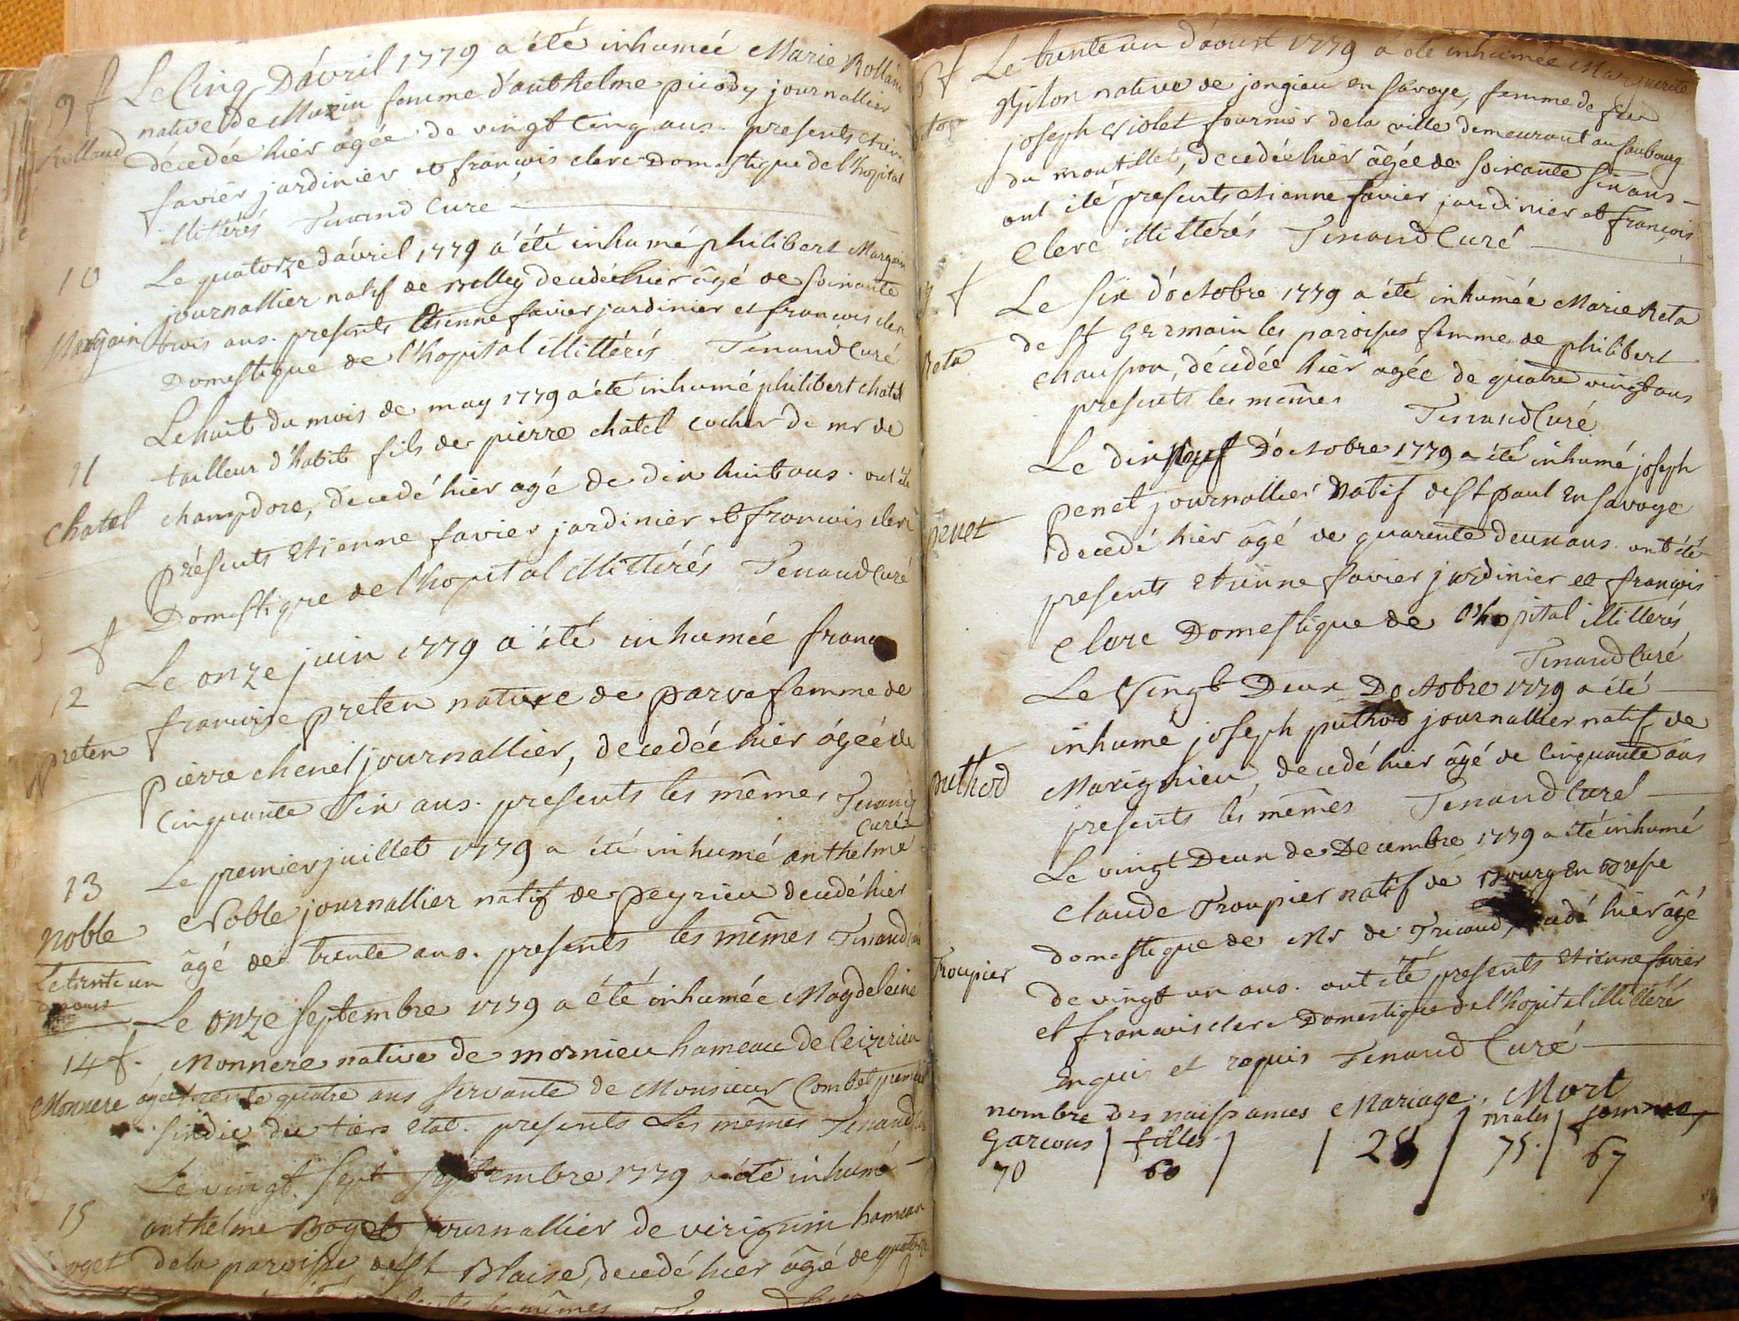 9 f Le Cinq D'avril 1779 a été inhumée Marie Rolland
Rolland native de Muzin femme d'anthelme picody journallier
décedée hier âgée de vingt Cinq ans. presents etienne
favier jardinier et françois clerc Domestique de l'hopital
illitérés Tenand Curé
10 Le quatorze d'avril 1779 a été inhumé philibert Margain
journallier natif de Belley decedé hier âgé de soixante
Margain trois ans. presents Etienne favier jardinier et francois clerc
Domestique de l'hopital illittérés Tenand Curé
Le huit du mois de may 1779 a été inhumé philibert chatel
11 tailleur d'habits fils de pierre chatel cocher de mr de
Chatel champdore, decedé hier agé de dix huit ans. ont été
présents Etienne favier jardinier et francois clerc
Domestique de l'hopital illittérés Tenand Curé
f Le onze juin 1779 a été inhumée
12 francoise preten native de parve femme de
preten pierre chenel journallier, decedée hier âgée de
Cinquante Six ans. présents les mêmes Tenand
Curé
13 Le premier juillet 1779 a été inhumé anthelme
Noble Noble journallier natif de peyrieu decedé hier
âgé de trente ans. presents les mêmes Tenand
Le trente un
d'aoust
Le onze septembre 1779 a été inhumée Magdeleine
14 f. Monnere native de mornieu hameau de Ceizerieu
Monnere agée trente quatre ans servante de Monsieur Combet premier
sindic du tiers etat. presents Les mêmes Tenand
Le vingt Sept septembre 1779 a été inhumé
15 anthelme Boget journallier de virignin hameau
Boget de la paroisse de St Blaise, decedé hier âgé de
les mêmes
f Le trente un d'aoust 1779 a été inhumée Marguerite
Gilon native de jongieu en Savoye, femme de feu
joseph Violet fournier de la ville demeurant au faubourg
du moutillet, decedée hier âgée de soixante six ans
ont été présents etienne favier jardinier et françois
Clerc illittérés Tenand Curé
f Le six d'octobre 1779 a été inhumée Marie Reta
Reta de St germain les paroisses femme de philibert
chauson, décedée hier âgée de quatre vingt ans
presents les mêmes Tenand Curé
Le dix neuf D'octobre 1779 a été inhumé joseph
penet penet journallier Natif de St paul en savoye
decedé hier âgé de quarente deux ans. ont été
presents Etienne favier jardinier et françois
clerc Domestique de l'hopital illitterés
Tenand Curé
Le Vingt Deux Doctobre 1779 a été
inhumé joseph puthod journallier natif de
puthod Marignieu decedé hier âgé de Cinquante ans
présents les mêmes Tenand Curé
Le vingt Deux de Decembre 1779 a été inhumé
Claude Troupier natif de Bourg en Bresse
domestique de Mr de Tricaud, decedé hier âgé
Troupier de vingt un ans. ont été presents Etienne favier
et francois clerc Domestique de l'hopital illittéré
Enquis et requis Tenand Curé
nombre des naissances Mariage. Mort
garcons | filles | | 28 | males | femmes
70 60 75. 67